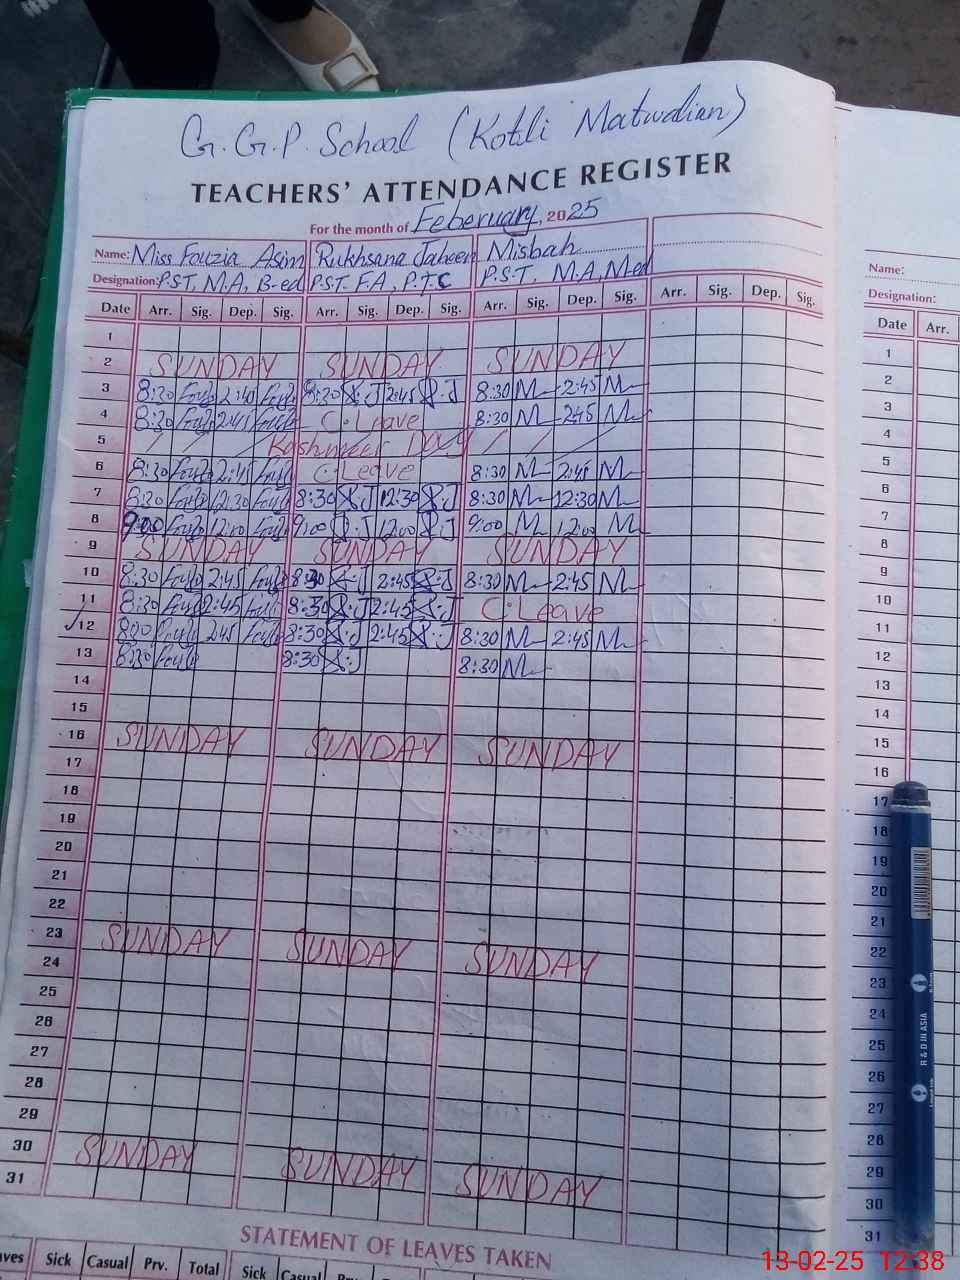 G.G.P. School (Kotli Matwalian)
TEACHERS' ATTENDANCE REGISTER
For the month of Feberuary, 2025
Name: Miss Fouzia Asim Rukhsana Jabeen Misbah
Designation: P.S.T, M.A, B-ed P.S.T. F.A, P.T.C P.S.T, M.A, M-ed
Date Arr. Sig. Dep. Sig. Arr. Sig. Dep. Sig. Arr. Sig. Dep. Sig. Arr. Sig. Dep. Sig.
1
2 SUNDAY SUNDAY SUNDAY
3 8:30 2:45 8:30 2:45 8:30 M 2:45 M
4 8:30 2:45 C.Leave 8:30 M 2:45 M
5 Kashmeer Day
6 8:30 2:45 C.Leave 8:30 M 2:45 M
7 8:30 12:30 8:30 12:30 8:30 M 12:30 M
8 9:00 12:00 9:00 12:00 9:00 M 12:00 M
9 SUNDAY SUNDAY SUNDAY
10 8:30 2:45 8:30 2:45 8:30 M 2:45 M
11 8:30 2:45 8:30 2:45 C.Leave
12 2:45 8:30 2:45 8:30 M 2:45 M
13 8:30 8:30 8:30 M
14
15
16 SUNDAY SUNDAY SUNDAY
17
18
19
20
21
22
23 SUNDAY SUNDAY SUNDAY
24
25
26
27
28
29
30 SUNDAY SUNDAY SUNDAY
31
STATEMENT OF LEAVES TAKEN
Sick Casual Prv. Total Sick Casual
Name:
Designation:
Date Arr.
1
2
3
4
5
6
7
8
9
10
11
12
13
14
15
16
17
18
19
20
21
22
23
24
25
26
27
28
29
30
31
R & D IN ASIA
13-02-25 12:38